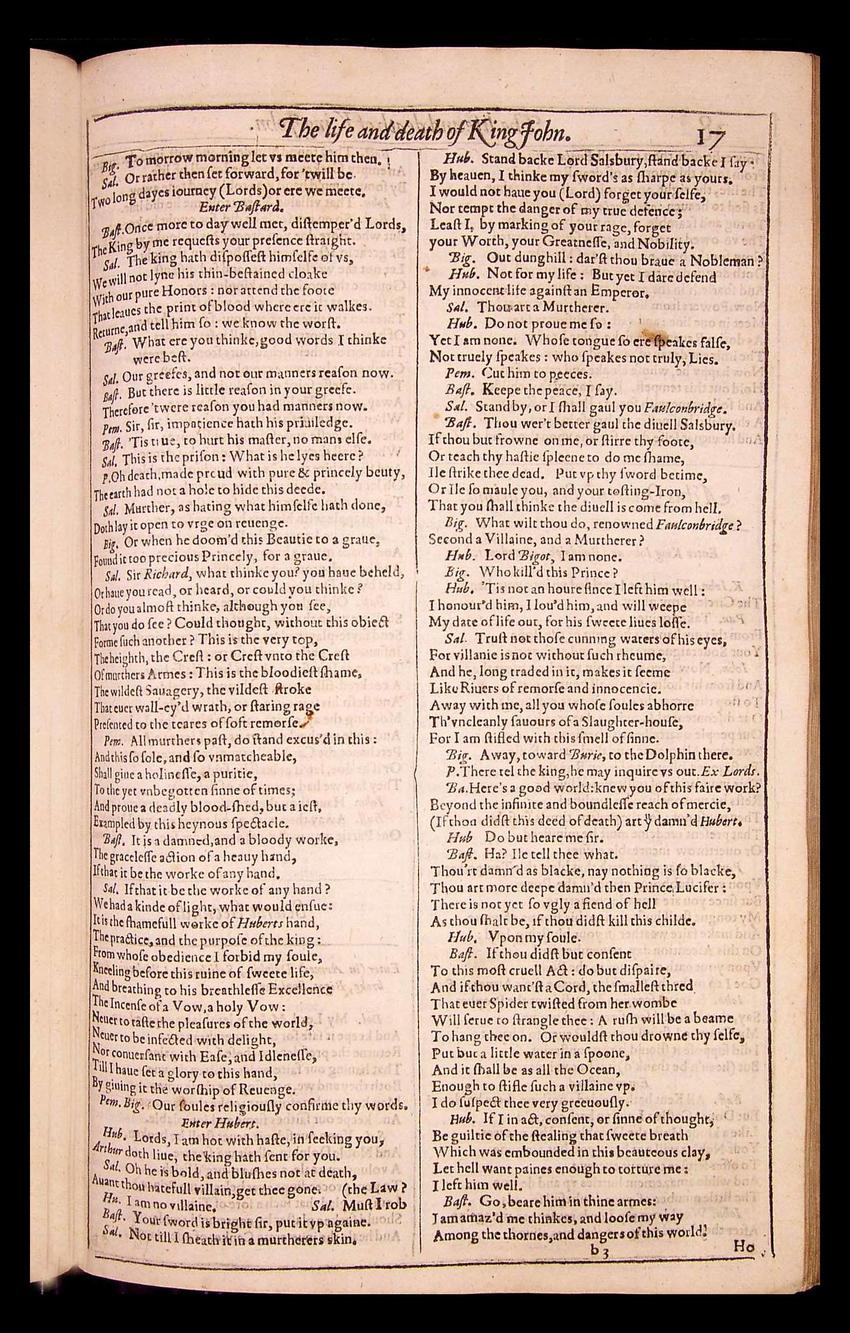 The life and death of King John. 17
Big. To morrow morning let vs meete him then.
Sal. Or rather then set forward, for 'twill be
Two long dayes iourney (Lords) or ere we meete.
Enter Bastard.
Bast. Once more to day well met, distemper'd Lords,
The King by me requests your presence straight.
Sal. The king hath dispossest himselfe of vs,
We will not lyne his thin-bestained cloake
With our pure Honors: nor attend the foote
That leaues the print of blood where ere it walkes.
Returne, and tell him so: we know the worst.
Bast. What ere you thinke, good words I thinke
were best.
Sal. Our greefes, and not our manners reason now.
Bast. But there is little reason in your greefe.
Therefore 'twere reason you had manners now.
Pem. Sir, sir, impatience hath his priuiledge.
Bast. 'Tis true, to hurt his master, no mans else.
Sal. This is the prison: What is he lyes heere?
P. Oh death, made proud with pure & princely beuty,
The earth had not a hole to hide this deede.
Sal. Murther, as hating what himselfe hath done,
Doth lay it open to vrge on reuenge.
Big. Or when he doom'd this Beautie to a graue,
Found it too precious Princely, for a graue.
Sal. Sir Richard, what thinke you? you haue beheld,
Or haue you read, or heard, or could you thinke?
Or do you almost thinke, although you see,
That you do see? Could thought, without this obiect
Forme such another? This is the very top,
The heighth, the Crest: or Crest vnto the Crest
Of murthers Armes: This is the bloodiest shame,
The wildest Sauagery, the vildest stroke
That euer wall-ey'd wrath, or staring rage
Presented to the teares of soft remorse.
Pem. All murthers past, do stand excus'd in this:
And this so sole, and so vnmatcheable,
Shall giue a holinesse, a puritie,
To the yet vnbegotten sinne of times;
And proue a deadly blood-shed, but a iest,
Exampled by this heynous spectacle.
Bast. It is a damned, and a bloody worke,
The gracelesse action of a heauy hand,
If that it be the worke of any hand.
Sal. If that it be the worke of any hand?
We had a kinde of light, what would ensue:
It is the shamefull worke of Huberts hand,
The practice, and the purpose of the king:
From whose obedience I forbid my soule,
Kneeling before this ruine of sweete life,
And breathing to his breathlesse Excellence
The Incense of a Vow, a holy Vow:
Neuer to taste the pleasures of the world,
Neuer to be infected with delight,
Nor conuersant with Ease, and Idlenesse,
Till I haue set a glory to this hand,
By giuing it the worship of Reuenge.
Pem. Big. Our soules religiously confirme thy words.
Enter Hubert.
Hub. Lords, I am hot with haste, in seeking you,
Arthur doth liue, the king hath sent for you.
Sal. Oh he is bold, and blushes not at death,
Auant thou hatefull villain, get thee gone. (the Law?
Hu. I am no villaine. Sal. Must I rob
Bast. Your sword is bright sir, put it vp againe.
Sal. Not till I sheath it in a murtherers skin.
Hub. Stand backe Lord Salsbury, stand backe I say:
By heauen, I thinke my sword's as sharpe as yours.
I would not haue you (Lord) forget your selfe,
Nor tempt the danger of my true defence;
Least I, by marking of your rage, forget
your Worth, your Greatnesse, and Nobility.
Big. Out dunghill: dar'st thou braue a Nobleman?
Hub. Not for my life: But yet I dare defend
My innocent life against an Emperor.
Sal. Thou art a Murtherer.
Hub. Do not proue me so:
Yet I am none. Whose tongue so ere speakes false,
Not truely speakes: who speakes not truly, Lies.
Pem. Cut him to peeces.
Bast. Keepe the peace, I say.
Sal. Stand by, or I shall gaul you Faulconbridge.
Bast. Thou wer't better gaul the diuell Salsbury.
If thou but frowne on me, or stirre thy foote,
Or teach thy hastie spleene to do me shame,
Ile strike thee dead. Put vp thy sword betime,
Or Ile so maule you, and your tosting-Iron,
That you shall thinke the diuell is come from hell.
Big. What wilt thou do, renowned Faulconbridge?
Second a Villaine, and a Murtherer?
Hub. Lord Bigot, I am none.
Big. Who kill'd this Prince?
Hub. 'Tis not an houre since I left him well:
I honour'd him, I lou'd him, and will weepe
My date of life out, for his sweete liues losse.
Sal. Trust not those cunning waters of his eyes,
For villanie is not without such rheume,
And he, long traded in it, makes it seeme
Like Riuers of remorse and innocencie.
Away with me, all you whose soules abhorre
Th'vncleanly sauours of a Slaughter-house,
For I am stifled with this smell of sinne.
Big. Away, toward Burie, to the Dolphin there.
P. There tel the king, he may inquire vs out. Ex Lords.
Ba. Here's a good world: knew you of this faire work?
Beyond the infinite and boundlesse reach of mercie,
(If thou didst this deed of death) art yͧ damn'd Hubert.
Hub Do but heare me sir.
Bast. Ha? Ile tell thee what.
Thou'rt damn'd as blacke, nay nothing is so blacke,
Thou art more deepe damn'd then Prince Lucifer:
There is not yet so vgly a fiend of hell
As thou shalt be, if thou didst kill this childe.
Hub. Vpon my soule.
Bast. If thou didst but consent
To this most cruell Act: do but dispaire,
And if thou want'st a Cord, the smallest thred
That euer Spider twisted from her wombe
Will serue to strangle thee: A rush will be a beame
To hang thee on. Or wouldst thou drowne thy selfe,
Put but a little water in a spoone,
And it shall be as all the Ocean,
Enough to stifle such a villaine vp.
I do suspect thee very greeuously.
Hub. If I in act, consent, or sinne of thought,
Be guiltie of the stealing that sweete breath
Which was embounded in this beauteous clay,
Let hell want paines enough to torture me:
I left him well.
Bast. Go, beare him in thine armes:
I am amaz'd me thinkes, and loose my way
Among the thornes, and dangers of this world.
b 3 Ho